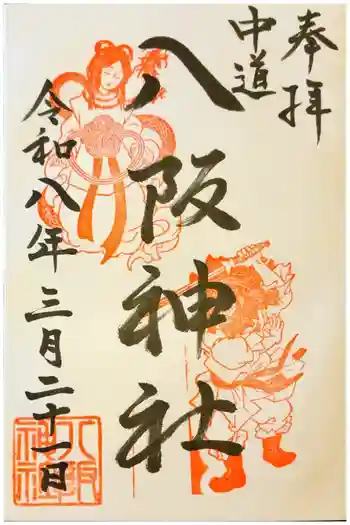 奉拝
中道
八阪神社
令和八年三月二十一日
八阪神社